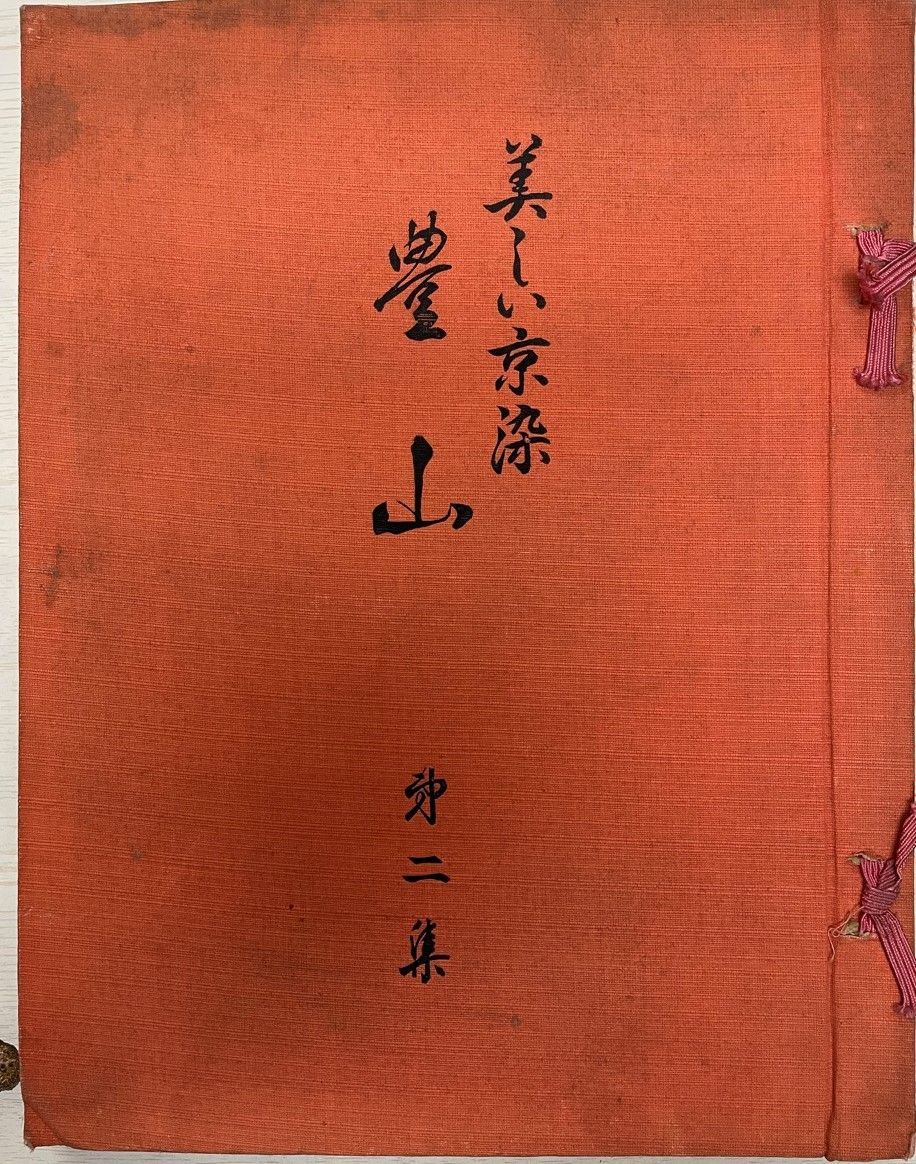 美しい京染
豊山
第二集